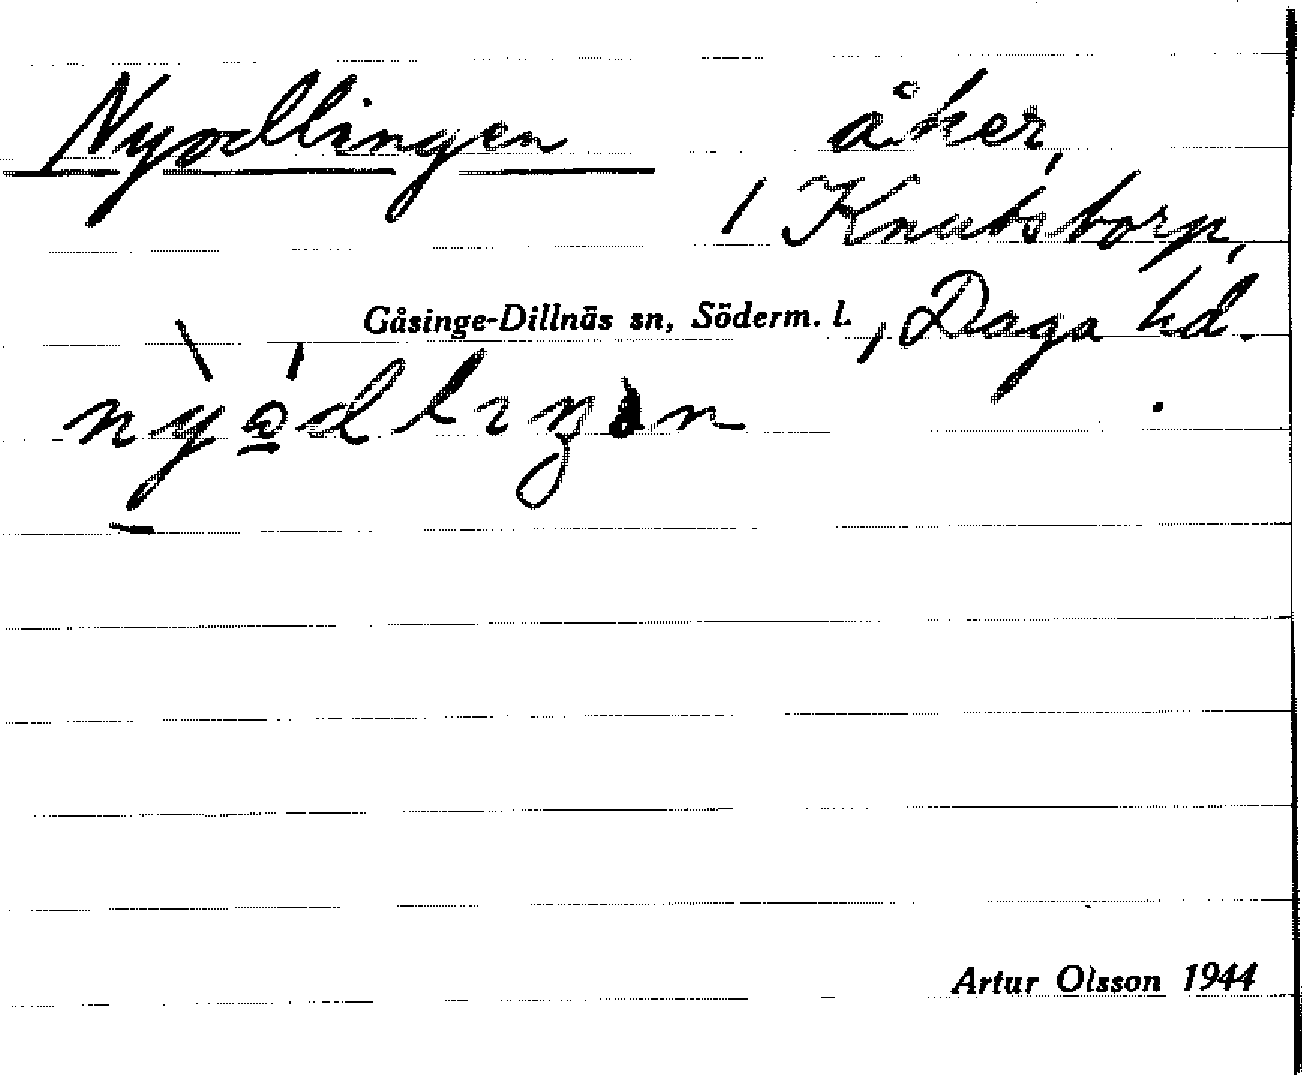 Nyodlingen åker,
/ Knutstorp,
Gåsinge-Dillnäs sn, Söderm. l., Daga hd.
Artur Olsson 1944